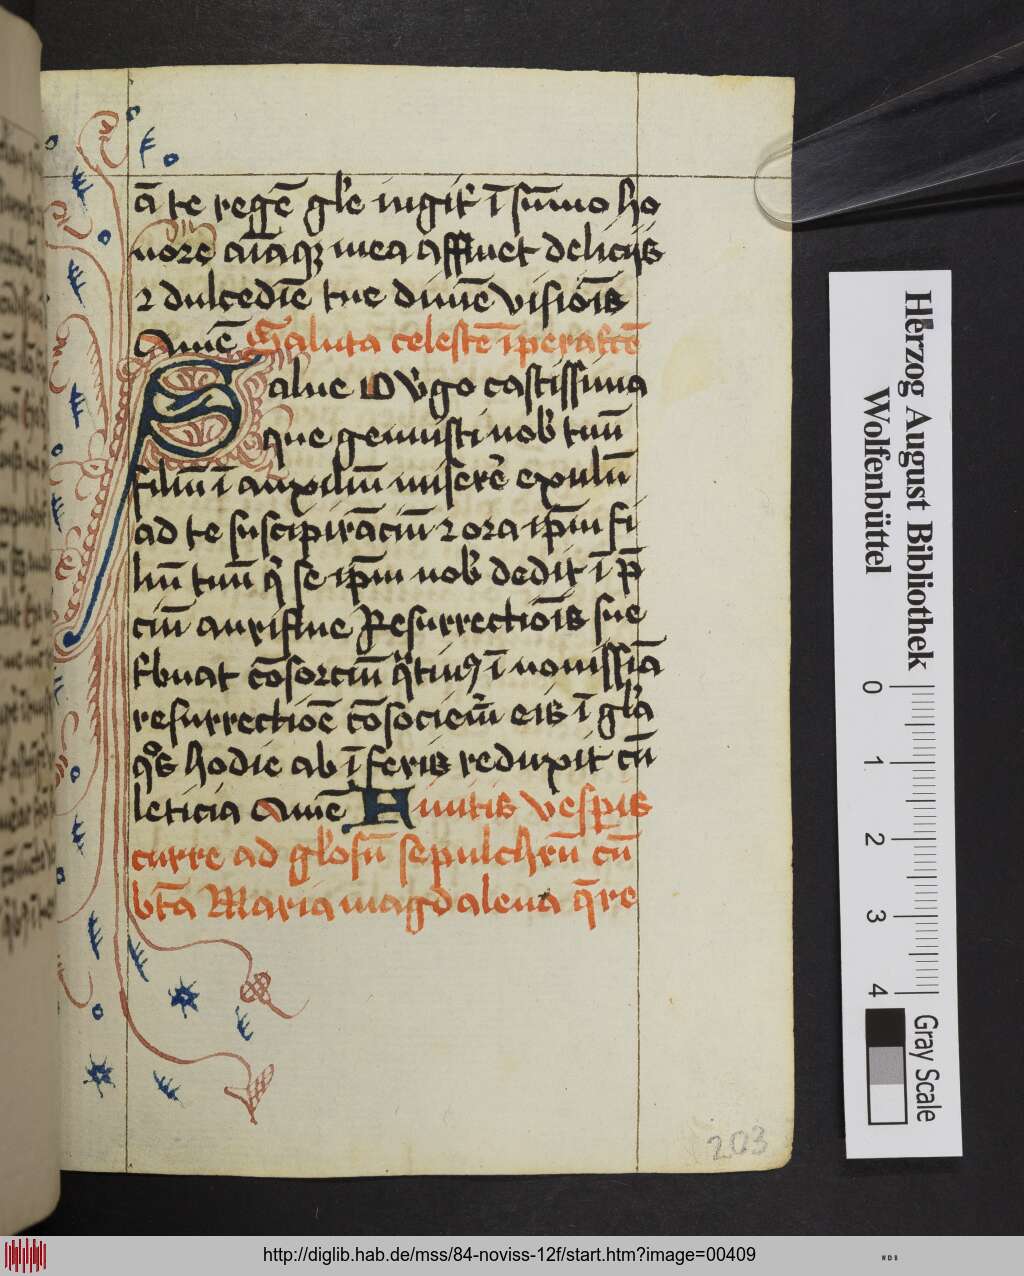 ā te regē gl'e iugit' ī sūmo ho
nore aīaqꝫ mea affluet delicijs
⁊ dulcedīe tue diuīe visiōis
Amē Saluta celestē īperat'cē
Salue o v'go castissima
que genuisti nob' tuū
filiū ī auxiliū misere' exulū
ad te suscipirāciū ⁊ ora ip̄m fi
liū tuū q' se ip̄m nob' dedit ī p̄
ciū aurifiue Resurrectiōis sue
t'buat cōsorciū q'tinꝰ ī nouissīa
resurrectiōe cōsociem' eis ī gl'a
qͦs hodie ab īferis reduxit cū
leticia Amē Finitis vespis
curre ad gl'osū sepulchrū cū
btā Maria magdalena q̄re
203
Herzog August Bibliothek
Wolfenbüttel
0 1 2 3 4
Gray Scale
http://diglib.hab.de/mss/84-noviss-12f/start.htm?image=00409